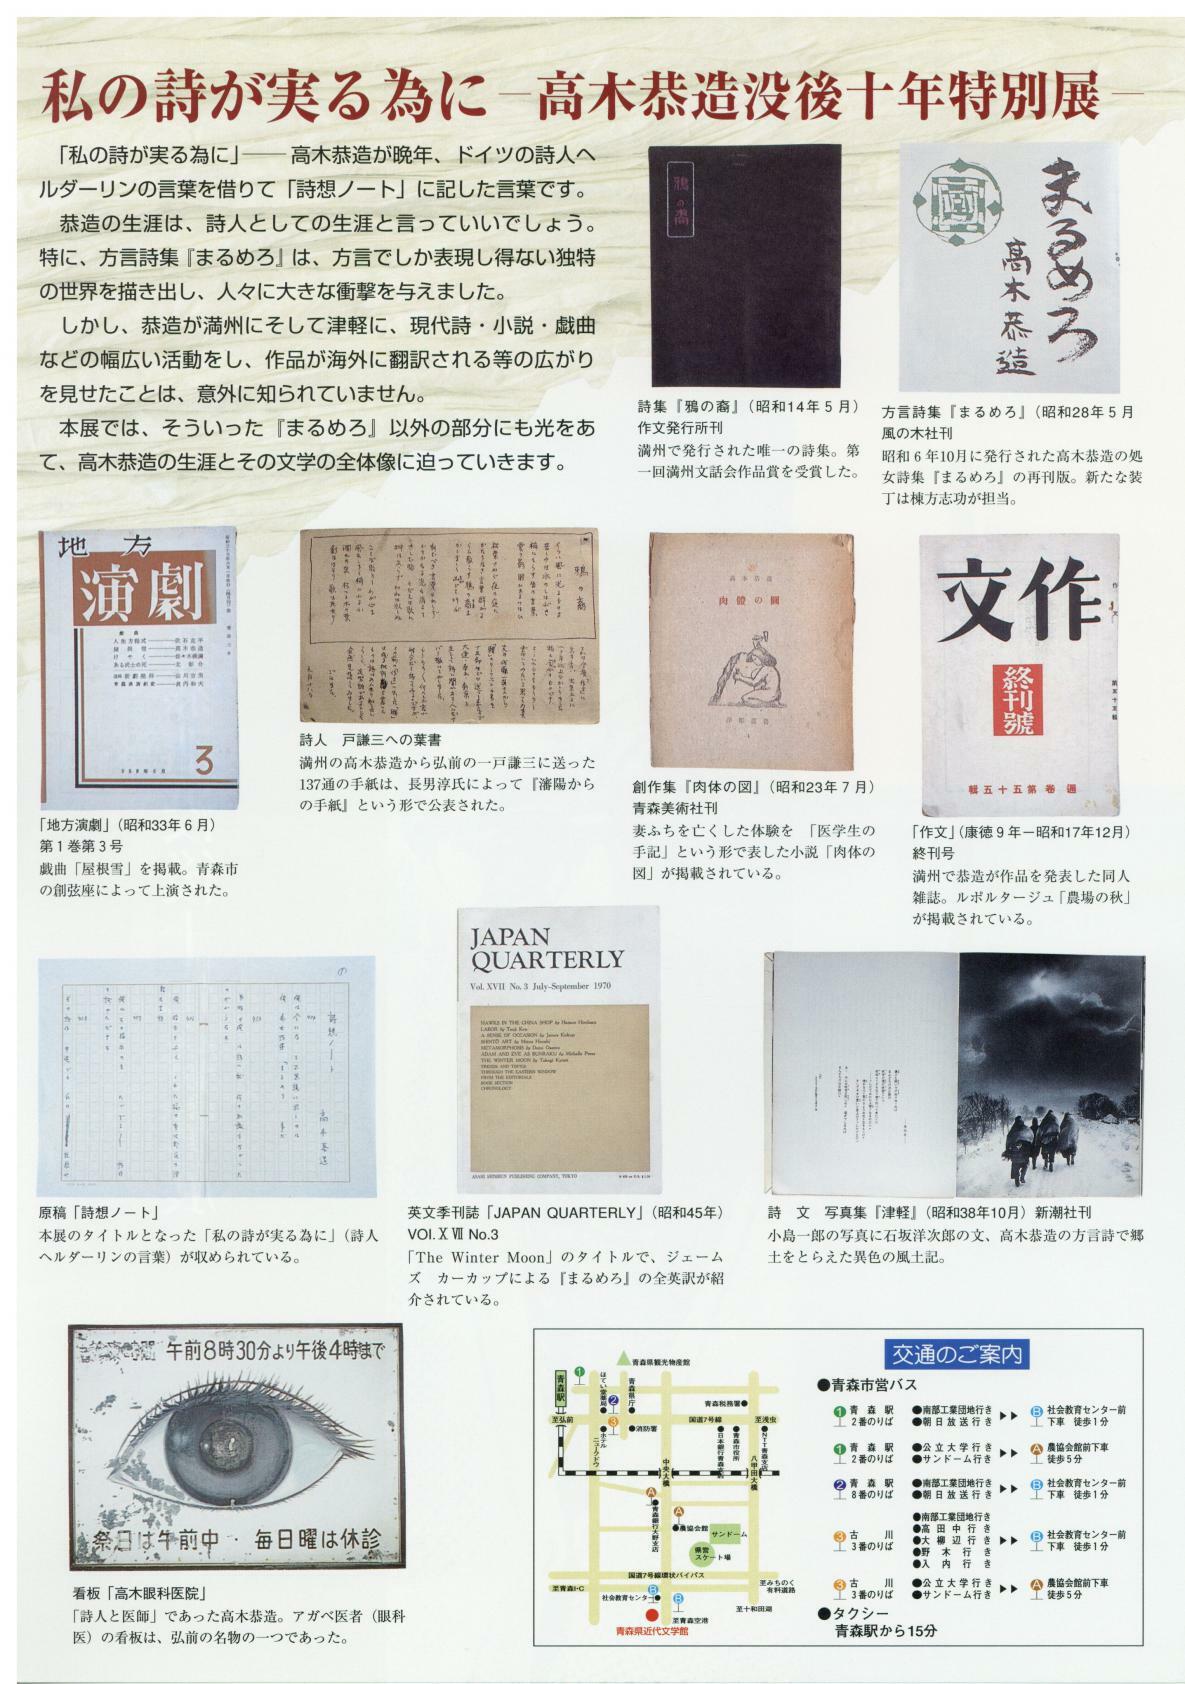 私の詩が実る為に ―高木恭造没後十年特別展―
「私の詩が実る為に」―― 高木恭造が晩年、ドイツの詩人ヘ
ルダーリンの言葉を借りて「詩想ノート」に記した言葉です。
恭造の生涯は、詩人としての生涯と言っていいでしょう。
特に、方言詩集『まるめろ』は、方言でしか表現し得ない独特
の世界を描き出し、人々に大きな衝撃を与えました。
しかし、恭造が満州にそして津軽に、現代詩・小説・戯曲
などの幅広い活動をし、作品が海外に翻訳される等の広がり
を見せたことは、意外に知られていません。
本展では、そういった『まるめろ』以外の部分にも光をあ
て、高木恭造の生涯とその文学の全体像に迫っていきます。
鴉の裔
詩集『鴉の裔』（昭和14年５月）
作文発行所刊
満州で発行された唯一の詩集。第
一回満州文話会作品賞を受賞した。
まるめろ
高木恭造
方言詩集『まるめろ』（昭和28年５月
風の木社刊
昭和６年10月に発行された高木恭造の処
女詩集『まるめろ』の再刊版。新たな装
丁は棟方志功が担当。
地方
演劇
3
「地方演劇」（昭和33年６月）
第１巻第３号
戯曲「屋根雪」を掲載。青森市
の創弦座によって上演された。
鴉の裔
詩人　戸謙三への葉書
満州の高木恭造から弘前の一戸謙三に送った
137通の手紙は、長男淳氏によって『瀋陽から
の手紙』という形で公表された。
高木恭造
肉體の圖
創作集『肉体の図』（昭和23年７月）
青森美術社刊
妻ふちを亡くした体験を　「医学生の
手記」という形で表した小説「肉体の
図」が掲載されている。
文作
終刊號
輯五十五第卷通
「作文」（康徳９年ー昭和17年12月）
終刊号
満州で恭造が作品を発表した同人
雑誌。ルポルタージュ「農場の秋」
が掲載されている。
詩想ノート
高木恭造
原稿「詩想ノート」
本展のタイトルとなった「私の詩が実る為に」（詩人
ヘルダーリンの言葉）が収められている。
JAPAN
QUARTERLY
Vol. XVII No. 3 July-September 1970
HAWKS IN THE CHINA SHOP by Hamon Hirohara
A SENSE OF OCCASION by James Kirkup
METAMORPHOSIS by Dazai Osamu
ADAM AND EVE AS BUNRAKU by Michelle Perez
THE WINTER MOON by Takagi Kyozo
TRENDS AND TOPICS
THROUGH THE EASTERN WINDOW
FROM THE EDITORIALS
BOOK SECTION
CHRONOLOGY
ASAHI SHIMBUN PUBLISHING COMPANY, TOKYO
英文季刊誌「JAPAN QUARTERLY」（昭和45年）
VOl.ⅩⅦ No.3
「The Winter Moon」のタイトルで、ジェーム
ズ　カーカップによる『まるめろ』の全英訳が紹
介されている。
詩　文　写真集『津軽』（昭和38年10月）新潮社刊
小島一郎の写真に石坂洋次郎の文、高木恭造の方言詩で郷
土をとらえた異色の風土記。
午前8時30分より午後4時まで
祭日は午前中・毎日曜は休診
看板「高木眼科医院」
「詩人と医師」であった高木恭造。アガベ医者（眼科
医）の看板は、弘前の名物の一つであった。
青森県観光物産館
青森駅
1
ほてい堂薬局
2
青森県庁
青森税務署
至弘前
3
国道7号線
至浅虫
消防署
ホテルニューアドウ
中央大橋
日本銀行青森支店
青森市役所
八甲田大橋
NTT青森支店
A
青森銀行大野支店
A
農協会館
サンドーム
県営
スケート場
国道7号線環状バイパス
至青森I・C
至みちのく
有料道路
B
社会教育センター
B
至十和田湖
至青森空港
青森県近代文学館
交通のご案内
●青森市営バス
1 青森駅 2番のりば ●南部工業団地行き ●朝日放送行き ▶▶ B 社会教育センター前 下車 徒歩1分
1 青森駅 2番のりば ●公立大学行き ●サンドーム行き ▶▶ A 農協会館前下車 徒歩5分
2 青森駅 8番のりば ●南部工業団地行き ●朝日放送行き ▶▶ B 社会教育センター前 下車 徒歩1分
3 古川 3番のりば ●南部工業団地行き ●高田中行き ●大柳辺行き ●野木行き ●入内行き ▶▶ B 社会教育センター前 下車 徒歩1分
3 古川 3番のりば ●公立大学行き ●サンドーム行き ▶▶ A 農協会館前下車 徒歩5分
●タクシー
青森駅から15分